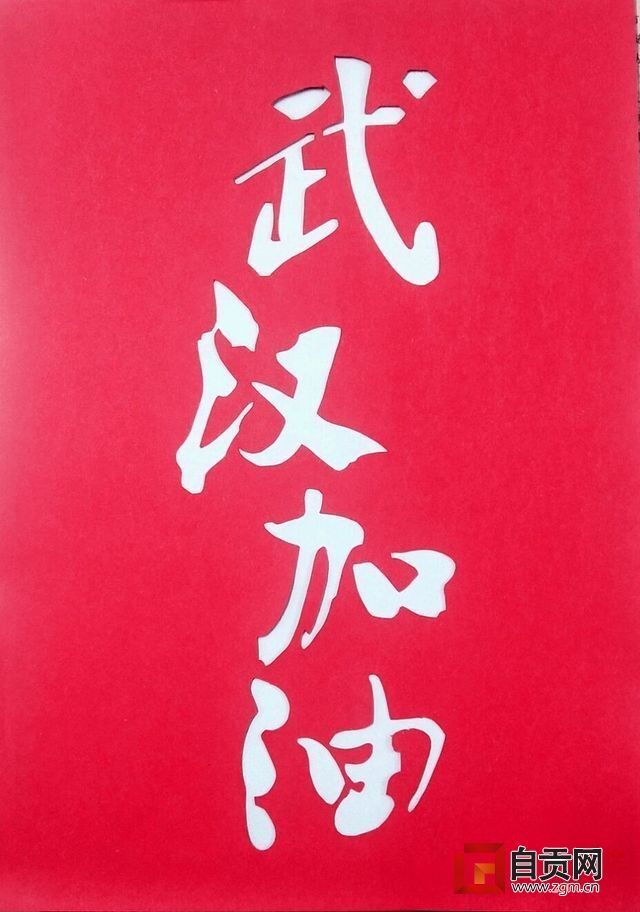 武汉加油
自贡网
www.zgm.cn